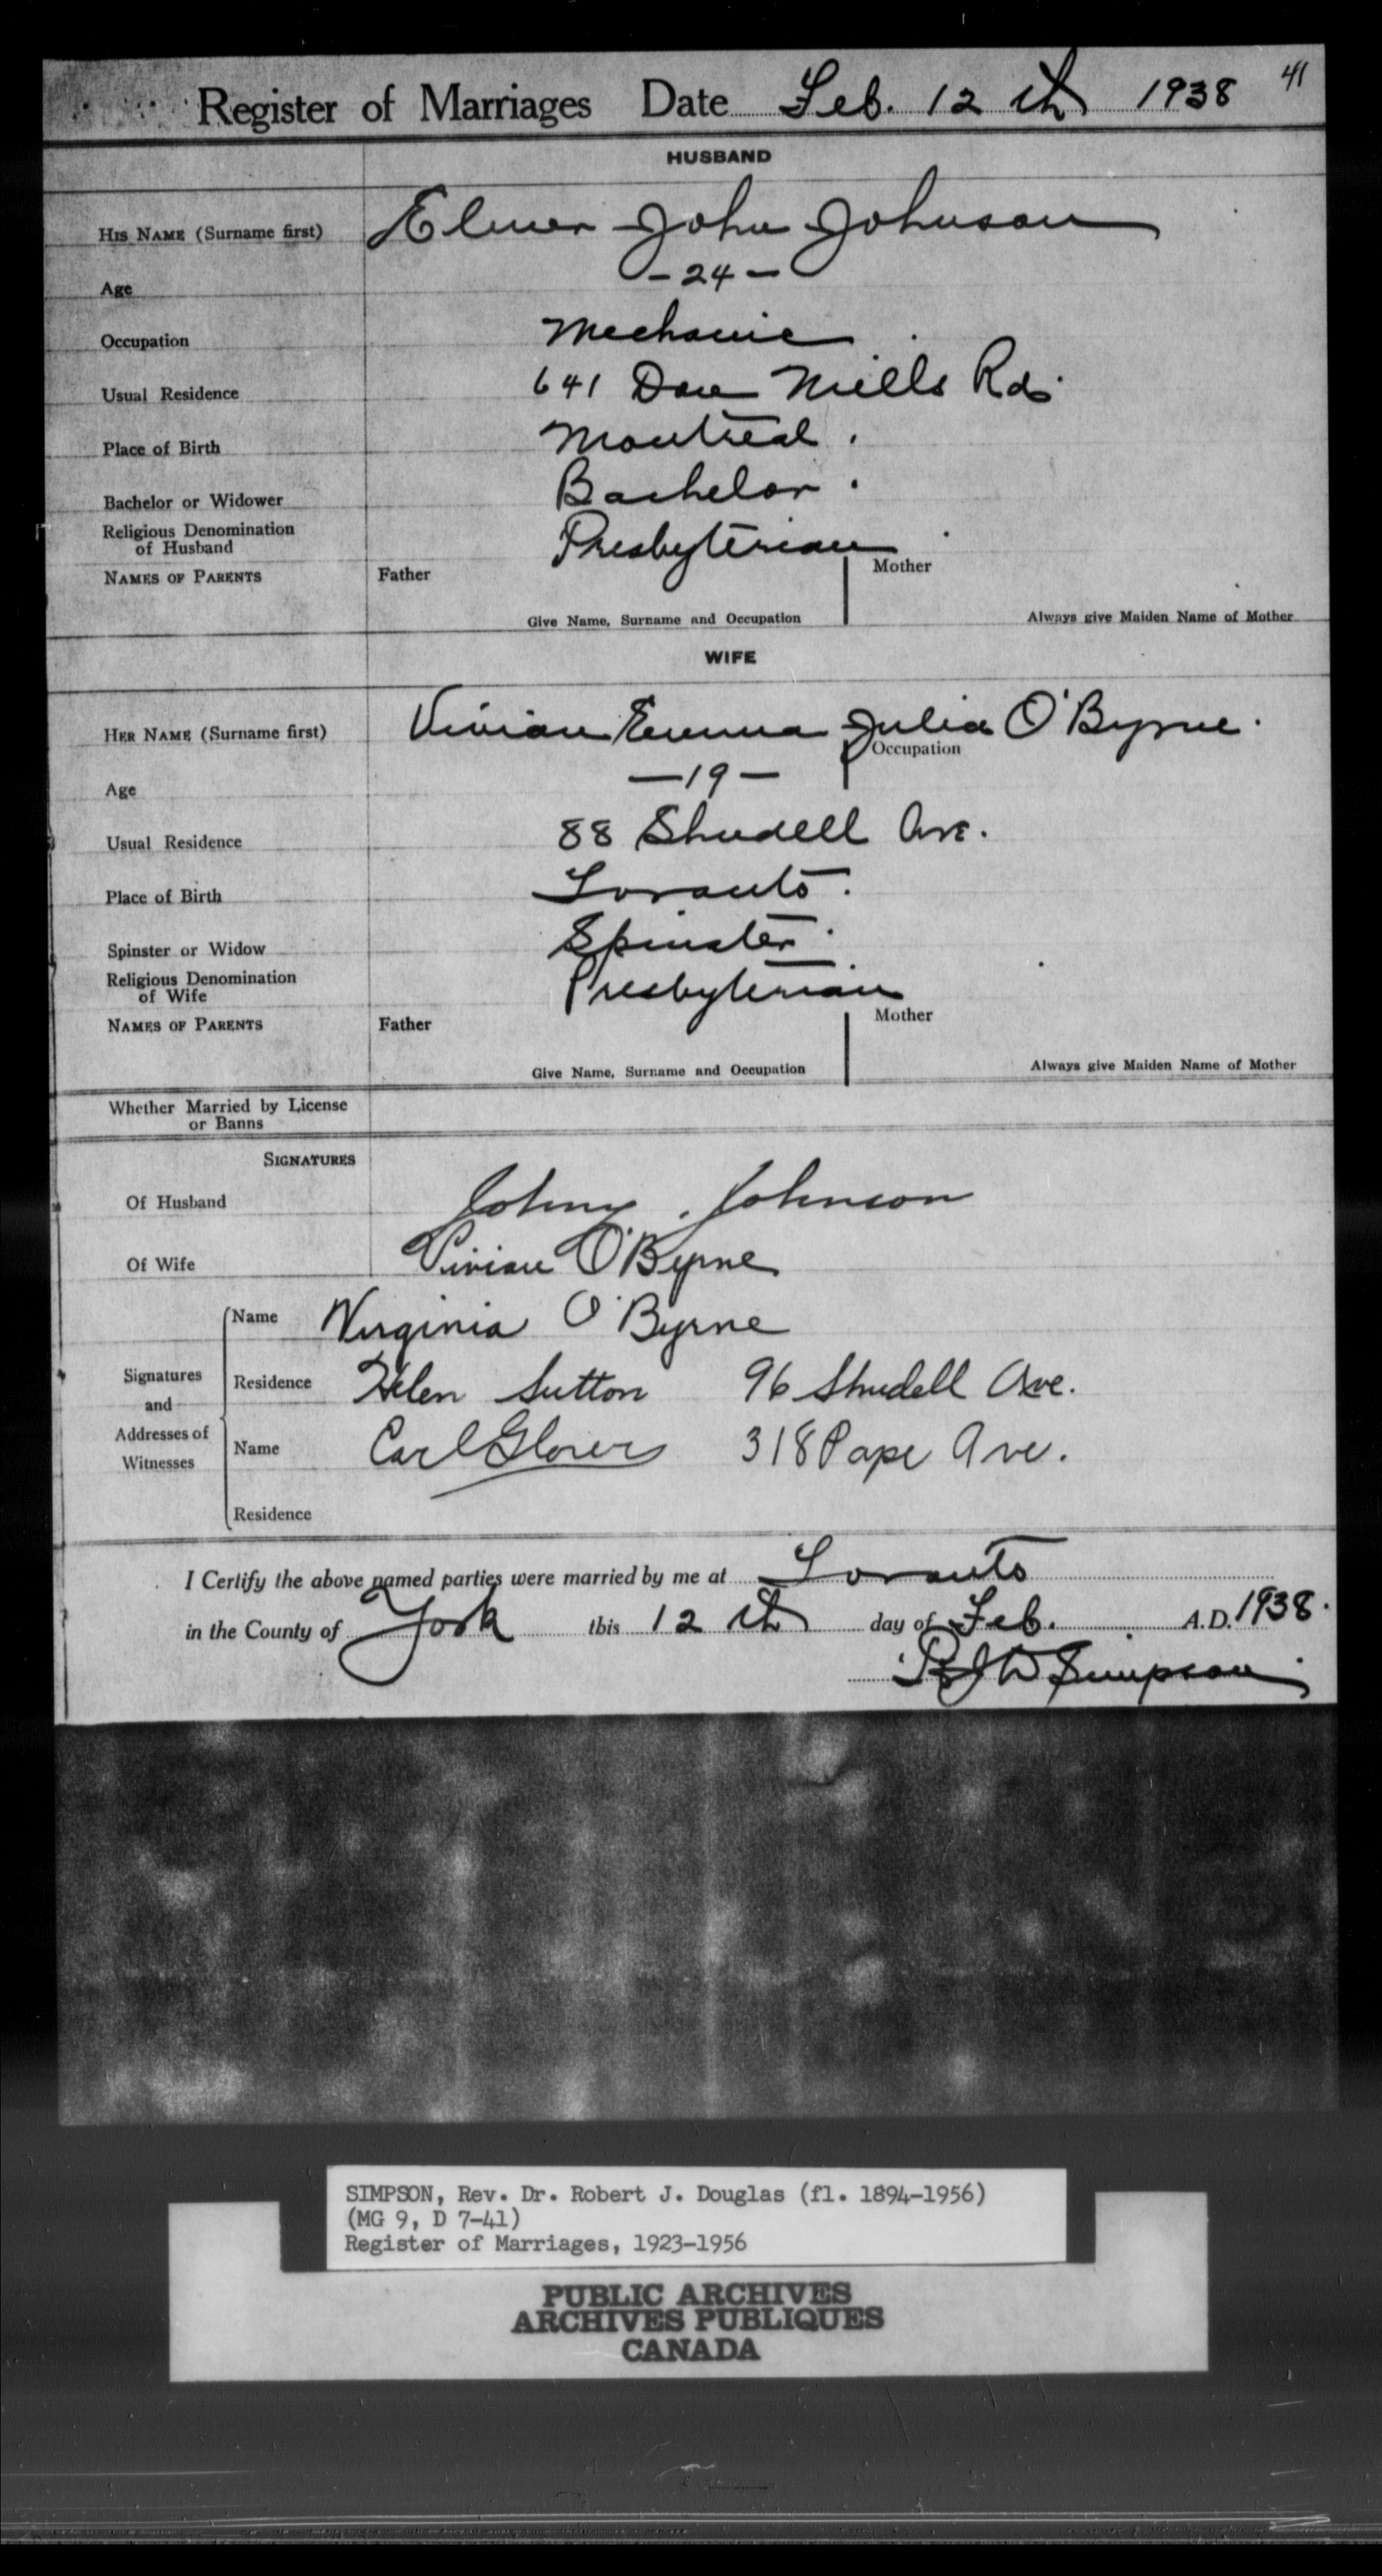 41
Register of Marriages Date Feb. 12 th 1938
HUSBAND
HIS NAME (Surname first) Elmer John Johnson
Age - 24 -
Occupation Mechanic
Usual Residence 641 Don Mills Rd.
Place of Birth Montreal.
Bachelor or Widower Bachelor.
Religious Denomination
of Husband Presbyterian
NAMES OF PARENTS Father Mother
Give Name, Surname and Occupation Always give Maiden Name of Mother
WIFE
HER NAME (Surname first) Vivian Emma Julia O'Byrne.
Occupation
Age - 19 -
Usual Residence 88 Shudell Ave.
Place of Birth Toronto.
Spinster or Widow Spinster.
Religious Denomination
of Wife Presbyterian
NAMES OF PARENTS Father Mother
Give Name, Surname and Occupation Always give Maiden Name of Mother
Whether Married by License
or Banns
SIGNATURES
Of Husband Johny Johnson
Of Wife Vivian O'Byrne
Name Virginia O'Byrne
Signatures
and
Addresses of
Witnesses
Residence Helen Sutton 96 Shudell Ave.
Name Carl Glover 318 Pape Ave.
Residence
I Certify the above named parties were married by me at Toronto
in the County of York this 12 th day of Feb. A.D. 1938.
R J D Simpson
SIMPSON, Rev. Dr. Robert J. Douglas (fl. 1894-1956)
(MG 9, D 7-41)
Register of Marriages, 1923-1956
PUBLIC ARCHIVES
ARCHIVES PUBLIQUES
CANADA